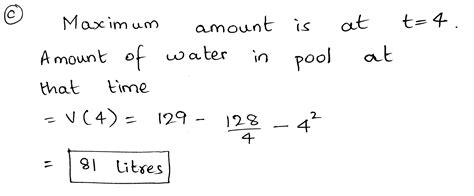 ⓒ Maximum amount is at t=4.
Amount of water in pool at
that time
= V(4) = 129 - 128/4 - 4²
= 81 Litres